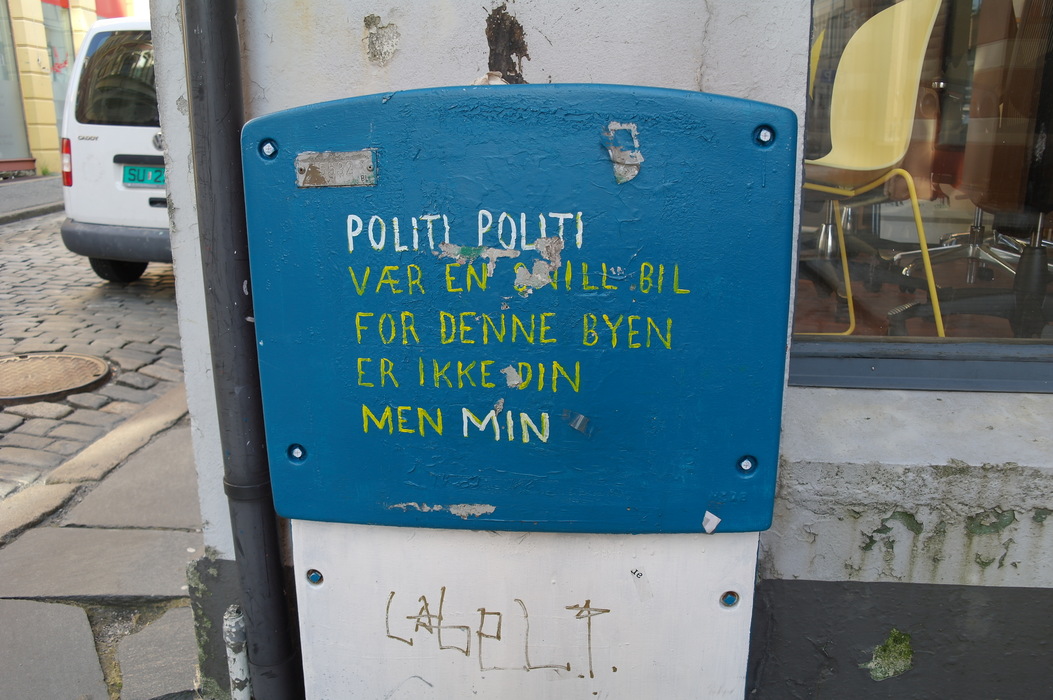 POLITI POLITI
VÆR EN SNILL BIL
FOR DENNE BYEN
ER IKKE DIN
MEN MIN
CADDY
SU 2